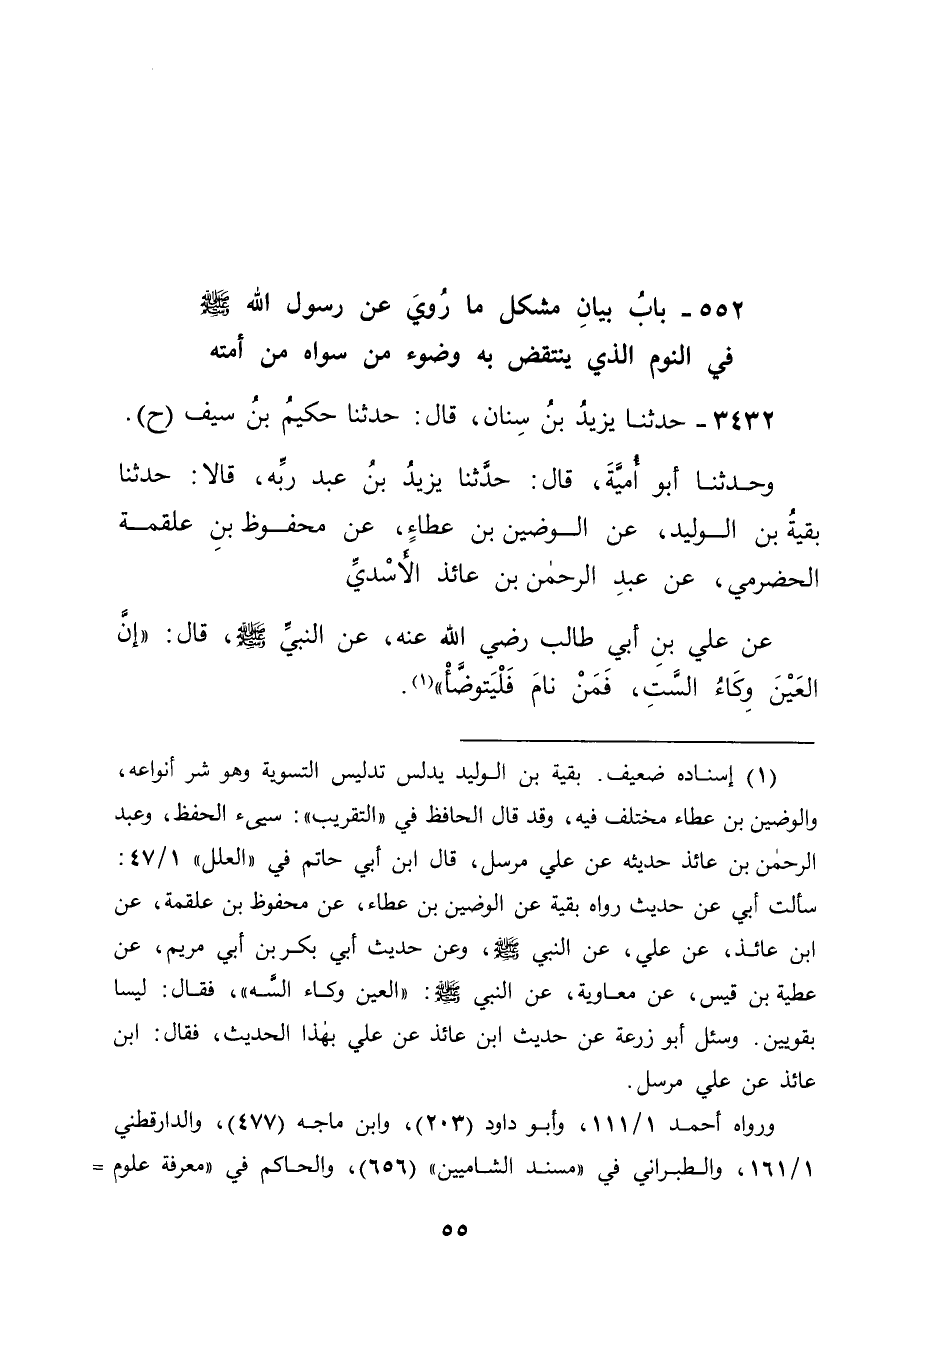 ٥٥٢ - بابُ بيانِ مشكل ما رُويَ عن رسول الله ﷺ
في النوم الذي ينتقض به وضوء من سواه من أمته
٣٤٣٢ - حدثنا يزيدُ بنُ سِنان، قال: حدثنا حكيمُ بنُ سيف (ح).
وحدثنا أبو أُميَّةَ، قال: حدَّثنا يزيدُ بنُ عبد ربِّه، قالا: حدثنا
بقيةُ بن الوليد، عن الوضين بن عطاءٍ، عن محفوظ بنِ علقمة
الحضرمي، عن عبدِ الرحمٰن بن عائذ الأَسْديِّ
عن علي بنِ أبي طالب رضي الله عنه، عن النبيِّ ﷺ، قال: «إنَّ
العَيْنَ وِكَاءُ السَّتِ، فَمَنْ نامَ فَلْيَتوضَّأْ»(١).
(١) إسناده ضعيف. بقية بن الوليد يدلس تدليس التسوية وهو شر أنواعه،
والوضين بن عطاء مختلف فيه، وقد قال الحافظ في «التقريب»: سيىء الحفظ، وعبد
الرحمٰن بن عائذ حديثه عن علي مرسل، قال ابن أبي حاتم في «العلل» ٤٧/١:
سألت أبي عن حديث رواه بقية عن الوضين بن عطاء، عن محفوظ بن علقمة، عن
ابن عائذ، عن علي، عن النبي ﷺ، وعن حديث أبي بكر بن أبي مريم، عن
عطية بن قيس، عن معاوية، عن النبي ﷺ: «العين وكاء السَّه»، فقال: ليسا
بقويين. وسئل أبو زرعة عن حديث ابن عائذ عن علي بهٰذا الحديث، فقال: ابن
عائذ عن علي مرسل.
ورواه أحمد ١١١/١، وأبو داود (٢٠٣)، وابن ماجه (٤٧٧)، والدارقطني
١٦١/١، والطبراني في «مسند الشاميين» (٦٥٦)، والحاكم في «معرفة علوم =
٥٥